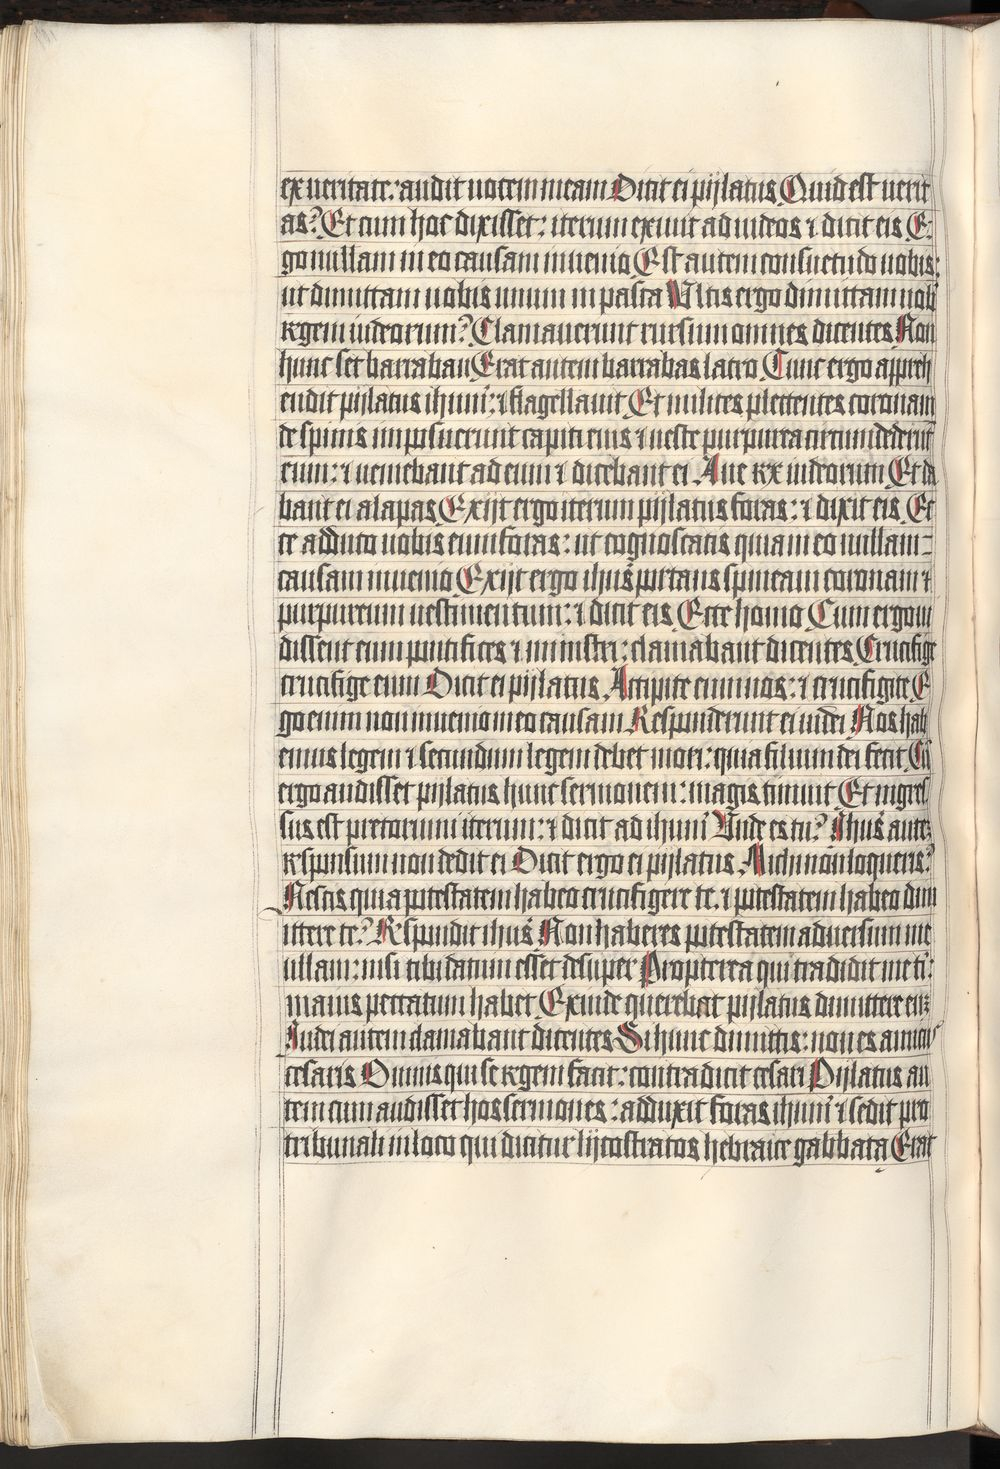 ex ueritate: audit uocem meam Dicit ei pijlatus Quid est uerit
as? Et cum hoc dixisset: iterum exiuit ad iudeos ⁊ dicit eis E-
go nullam in eo causam inuenio Est autem consuetudo uobis:
ut dimittam uobis unum in pasca Vltis ergo dimittam uob
regem iudeorum? Clamauerunt rursum omnes dicentes Non
hunc set barraban Erat autem barrabas latro Tunc ergo appreh
endit pijlatus ihum̄: ⁊ flagellauit Et milites plectentes coronam
de spinis imposuerunt capiti eius ⁊ ueste purpurea circumdederūt
eum: ⁊ ueniebant ad eum ⁊ dicebant ei Aue rex iudeorum Et da
bant ei alapas Exijt ergo iterum pijlatus foras: ⁊ dixit eis Ec
ce adduco uobis eum foras: ut cognoscatis quia in eo nullam-
causam inuenio Exijt ergo ihus̄ portans spineam coronam ⁊
purpureum uestimentum: ⁊ dicit eis Ecce homo Cum ergo ui
dissent eum pontifices ⁊ ministri: clamabant dicentes Crucifige
crucifige eum Dicit ei pijlatus Accipite eum uos: ⁊ crucifigite E
go enim non inuenio in eo causam Responderunt ei iudei Nos hab
emus legem ⁊ secundum legem debet mori: quia filium dei fecit Cū
ergo audisset pijlatus hunc sermonem: magis timuit Et ingres
sus est pretorium iterum: ⁊ dicit ad ihum̄ Vnde es tu? Ihus̄ autez
responsum non dedit ei Dicit ergo ei pijlatus Michi non loqueris?
Nescis quia potestatem habeo crucifigere te ⁊ potestatem habeo dim
ittere te? Respondit ihus̄ Non haberes potestatem aduersum me
ullam: nisi tibi datum esset desuper Propterea qui tradidit me t̄:
maius peccatum habet Exinde querebat pijlatus dimittere euz
Iudei autem clamabant dicentes Si hunc dimittis: non es amicus
cesaris Omnis qui se regem facit: contradicit cesari Pijlatus au
tem cum audisset hos sermones: adduxit foras ihum̄ ⁊ sedit pro
tribunali in loco qui dicitur lijcostratos hebraice gabbata Erat